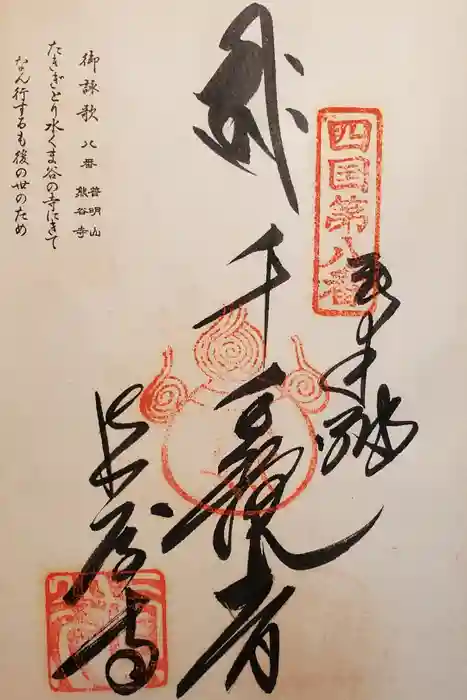 四国第八番
奉納
千手観音
熊谷寺
御詠歌 八番 普明山
熊谷寺
たきぎとり水くま谷の寺にきて
なん行するも後の世のため